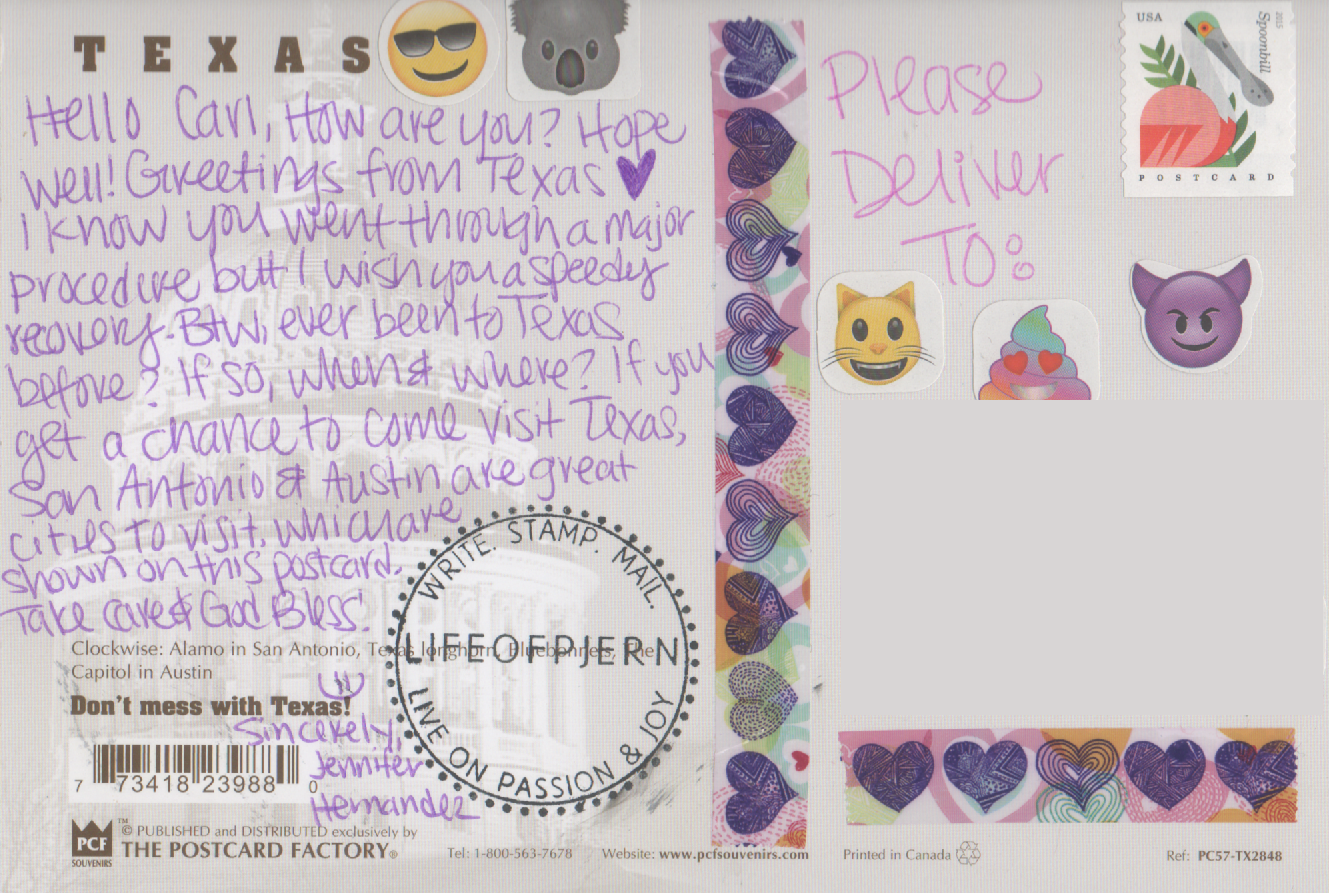 TEXAS
Hello Carl, How are you? Hope
well! Greetings from Texas
I know you went through a major
procedure but I wish you a speedy
recovery. Btw, ever been to Texas
before? If so, when & where? If you
get a chance to come visit Texas,
San Antonio & Austin are great
cities to visit, which are
shown on this postcard.
Take care & God Bless!
Clockwise: Alamo in San Antonio, Texas longhorn, Bluebonnets, The
Capitol in Austin
Don't mess with Texas!
Sincerely,
Jennifer
Hernandez
WRITE. STAMP. MAIL.
LIFEOFPJERN
LIVE ON PASSION & JOY
7 73418 23988 0
PCF
SOUVENIRS
™ © PUBLISHED and DISTRIBUTED exclusively by
THE POSTCARD FACTORY®
Tel: 1-800-563-7678 Website: www.pcfsouvenirs.com
Please
Deliver
To:
USA
2015
Spoonbill
POSTCARD
Printed in Canada
Ref: PC57-TX2848